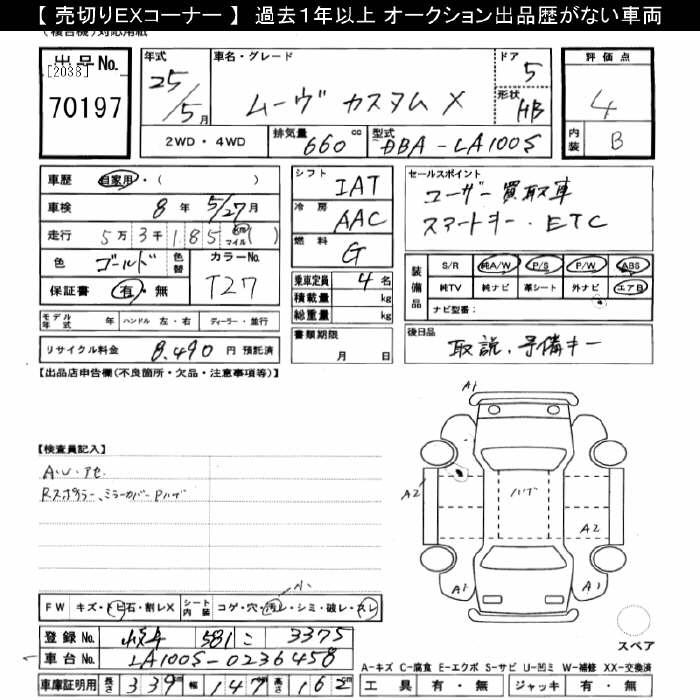 【 売切りEXコーナー 】 過去１年以上 オークション出品歴がない車両
出品No. [2038]
70197
年式 25/5月
車名・グレード ムーヴ カスタム X
ドア 5
形状 HB
2WD・4WD
排気量 660 cc
型式 DBA-LA100S
評価点 4
内装 B
車歴 自家用・( )
車検 8年 5/27月
走行 5万3千185 km マイル ( )
色 ゴールド 色替 カラーNo. T27
保証書 有・無
シフト IAT
冷房 AAC
燃料 G
乗車定員 4 名
積載量 kg
総重量 kg
書類期限 月 日
セールスポイント
ユーザー買取車
スマートキー・ETC
装備品 S/R 純A/W P/S P/W ABS
純TV 純ナビ 革シート 外ナビ エアB
ナビ型番:
後日品 取説、予備キー
モデル年式 年 ハンドル 左・右 ディーラー・並行
リサイクル料金 8,490 円 預託済
【出品店申告欄(不良箇所・欠品・注意事項等)】
【検査員記入】
A.W.アセ
Rスポイラー、ミラーカバーPハゲ
A1
A2
ハゲ
A2
A1
A1
FW キズ・トビ石・割レX シート内装 コゲ・穴・汚レ・シミ・破レ・スレ
小
登録No. 581 こ 3375
車台No. LA100S-0236458
車庫証明用 長さ 339 幅 147 高さ 162
スペア
A-キズ C-腐食 E-エクボ S-サビ U-凹ミ W-補修 XX-交換済
工具 有・無 ジャッキ 有・無